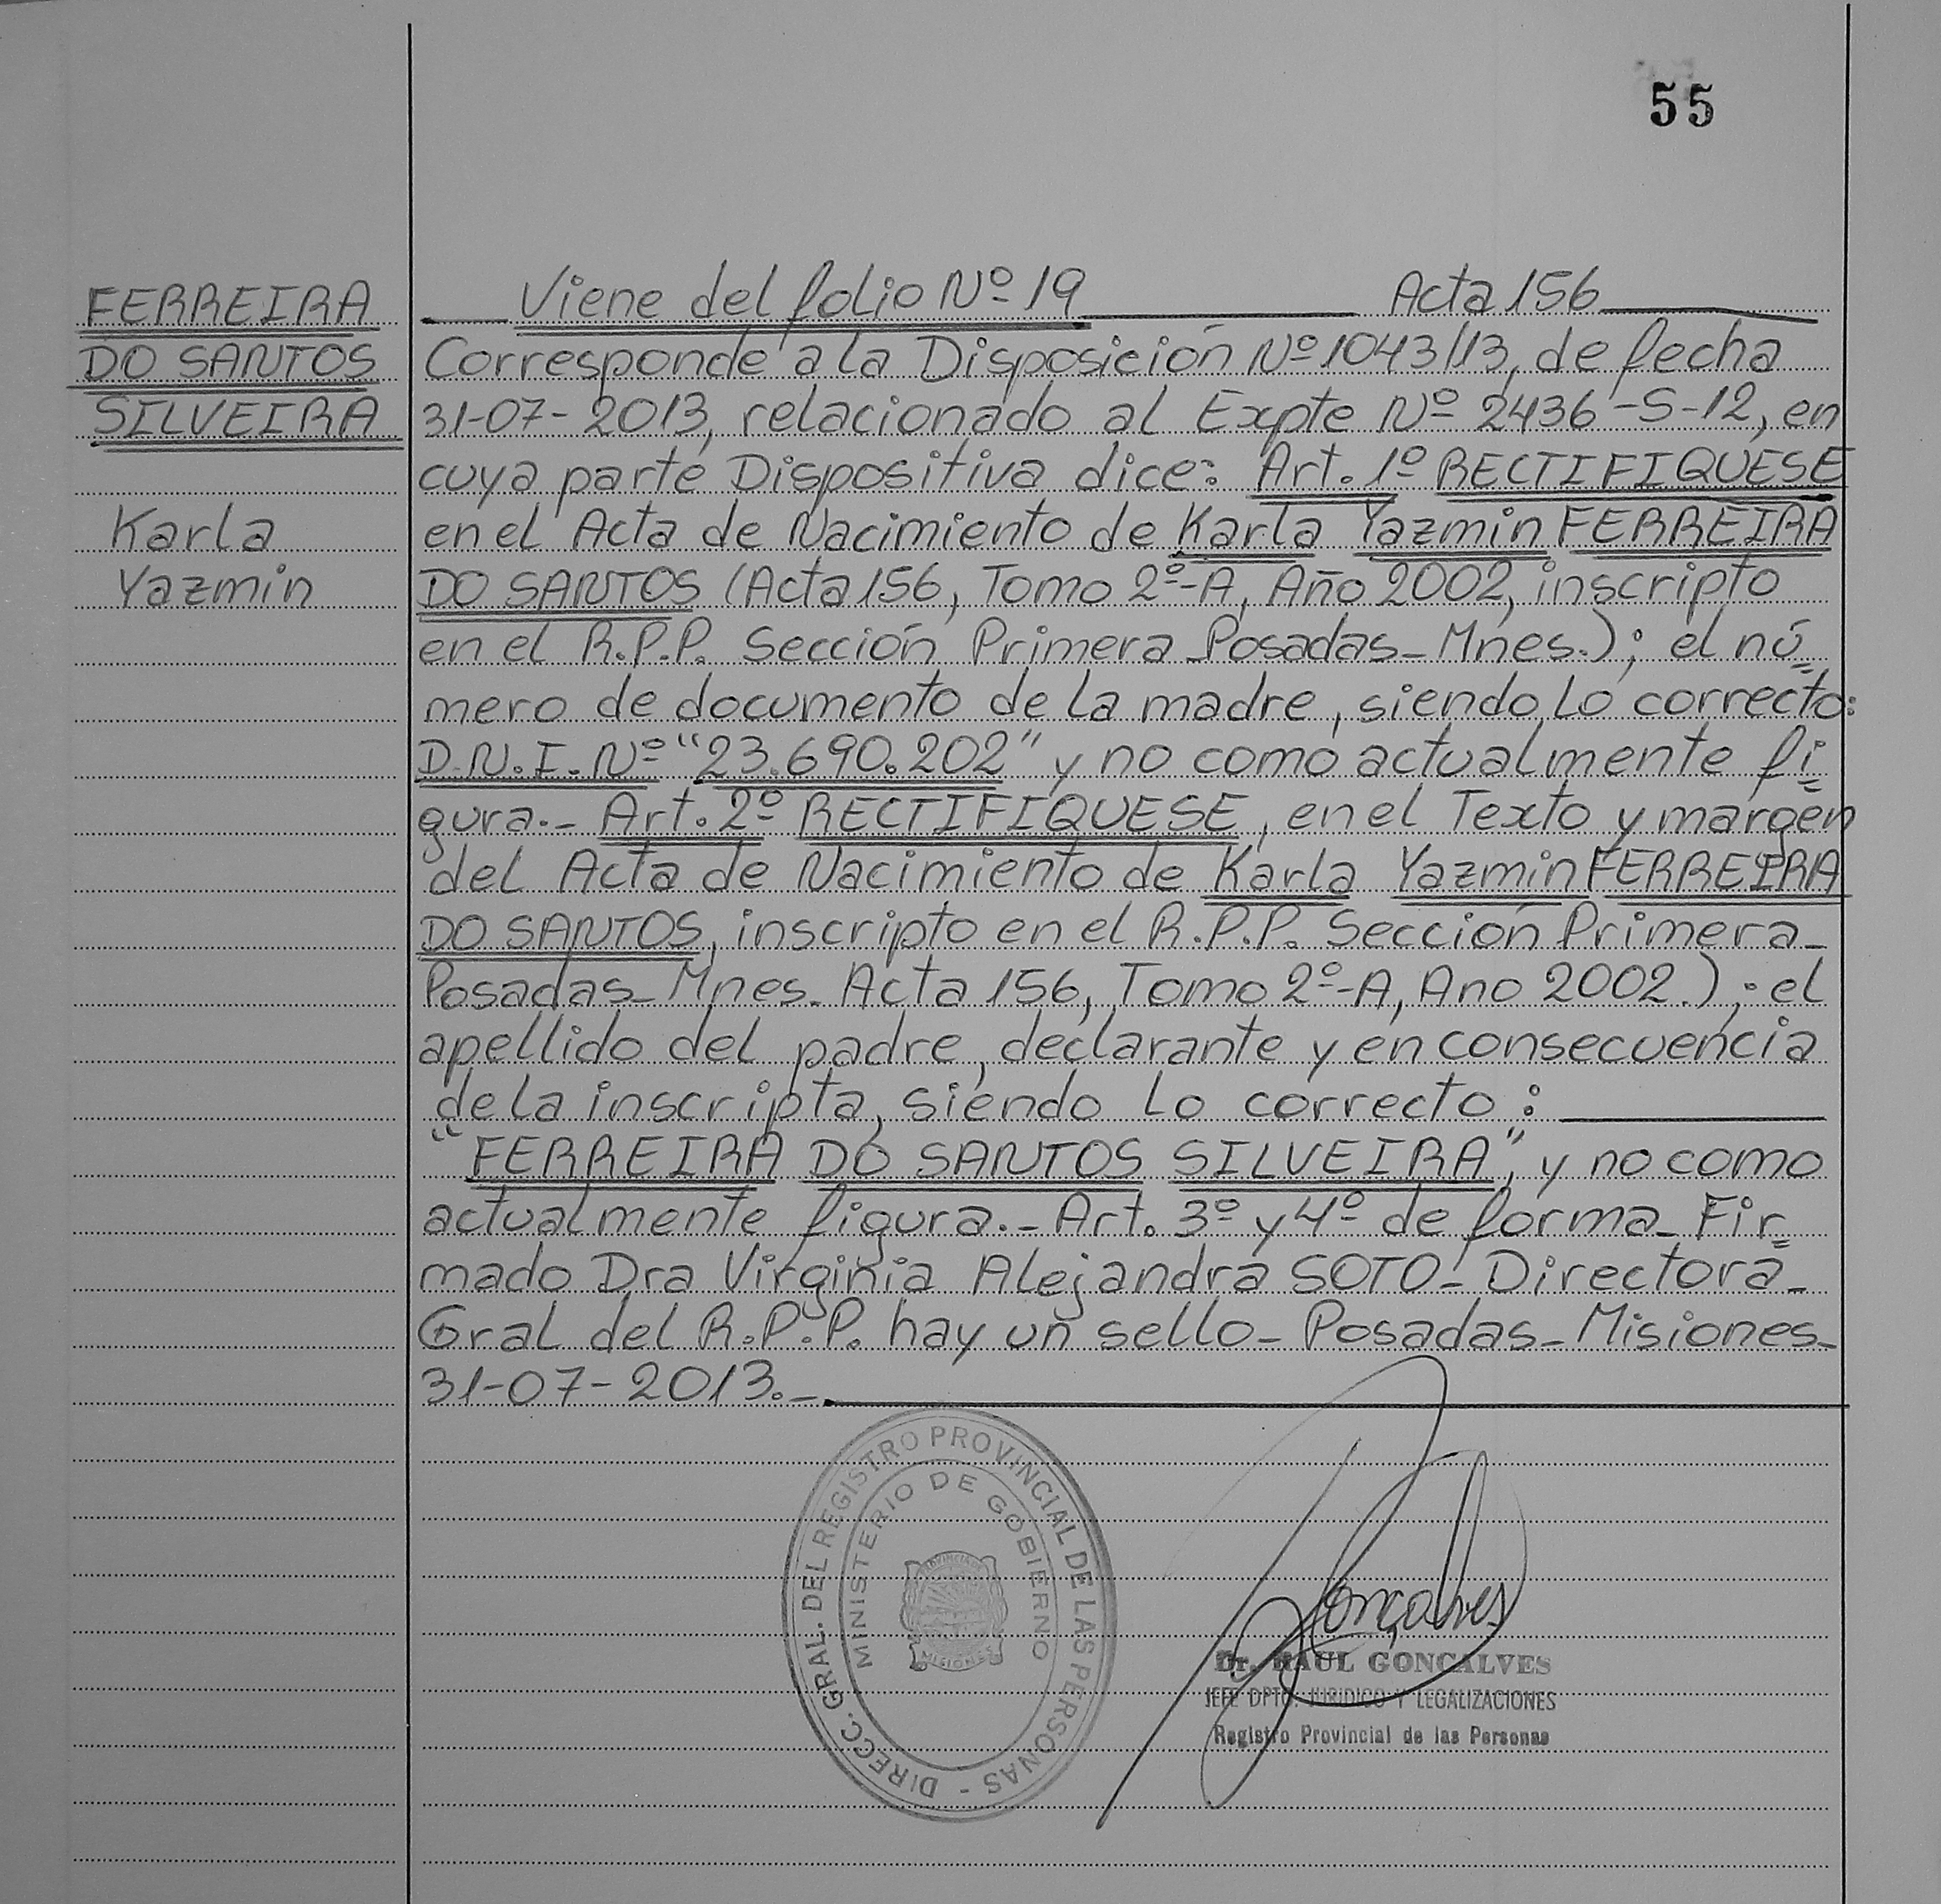 55
FERREIRA
DO SANTOS
SILVEIRA
Karla
Yazmin
Viene del folio Nº 19 Acta 156
Corresponde a la Disposición Nº 1043/13, de fecha
31-07-2013, relacionado al Expte Nº 2436-S-12, en
cuya parte Dispositiva dice: Art. 1º RECTIFIQUESE
en el Acta de Nacimiento de Karla Yazmin FERREIRA
DO SANTOS (Acta 156, Tomo 2º-A, Año 2002, inscripto
en el R.P.P. Sección Primera Posadas-Mnes.); el nú=
mero de documento de la madre, siendo lo correcto:
D.N.I. Nº "23.690.202" y no como actualmente fi=
gura.- Art. 2º RECTIFIQUESE, en el Texto y margen
del Acta de Nacimiento de Karla Yazmin FERREIRA
DO SANTOS, inscripto en el R.P.P. Sección Primera-
Posadas-Mnes-Acta 156, Tomo 2º-A, Ano 2002.); el
apellido del padre, declarante y en consecuencia
de la inscripta, siendo lo correcto:
"FERREIRA DO SANTOS SILVEIRA", y no como
actualmente figura.- Art. 3º y 4º de forma- Fir=
mado Dra Virginia Alejandra SOTO- Directora-
Gral del R.P.P. hay un sello- Posadas-Misiones-
31-07-2013.-
DIRECC. GRAL. DEL REGISTRO PROVINCIAL DE LAS PERSONAS -
MINISTERIO DE GOBIERNO
PROVINCIA DE
MISIONES
Gonçalves
Dr. RAUL GONCALVES
JEFE DPTO. JURIDICO Y LEGALIZACIONES
Registro Provincial de las Personas